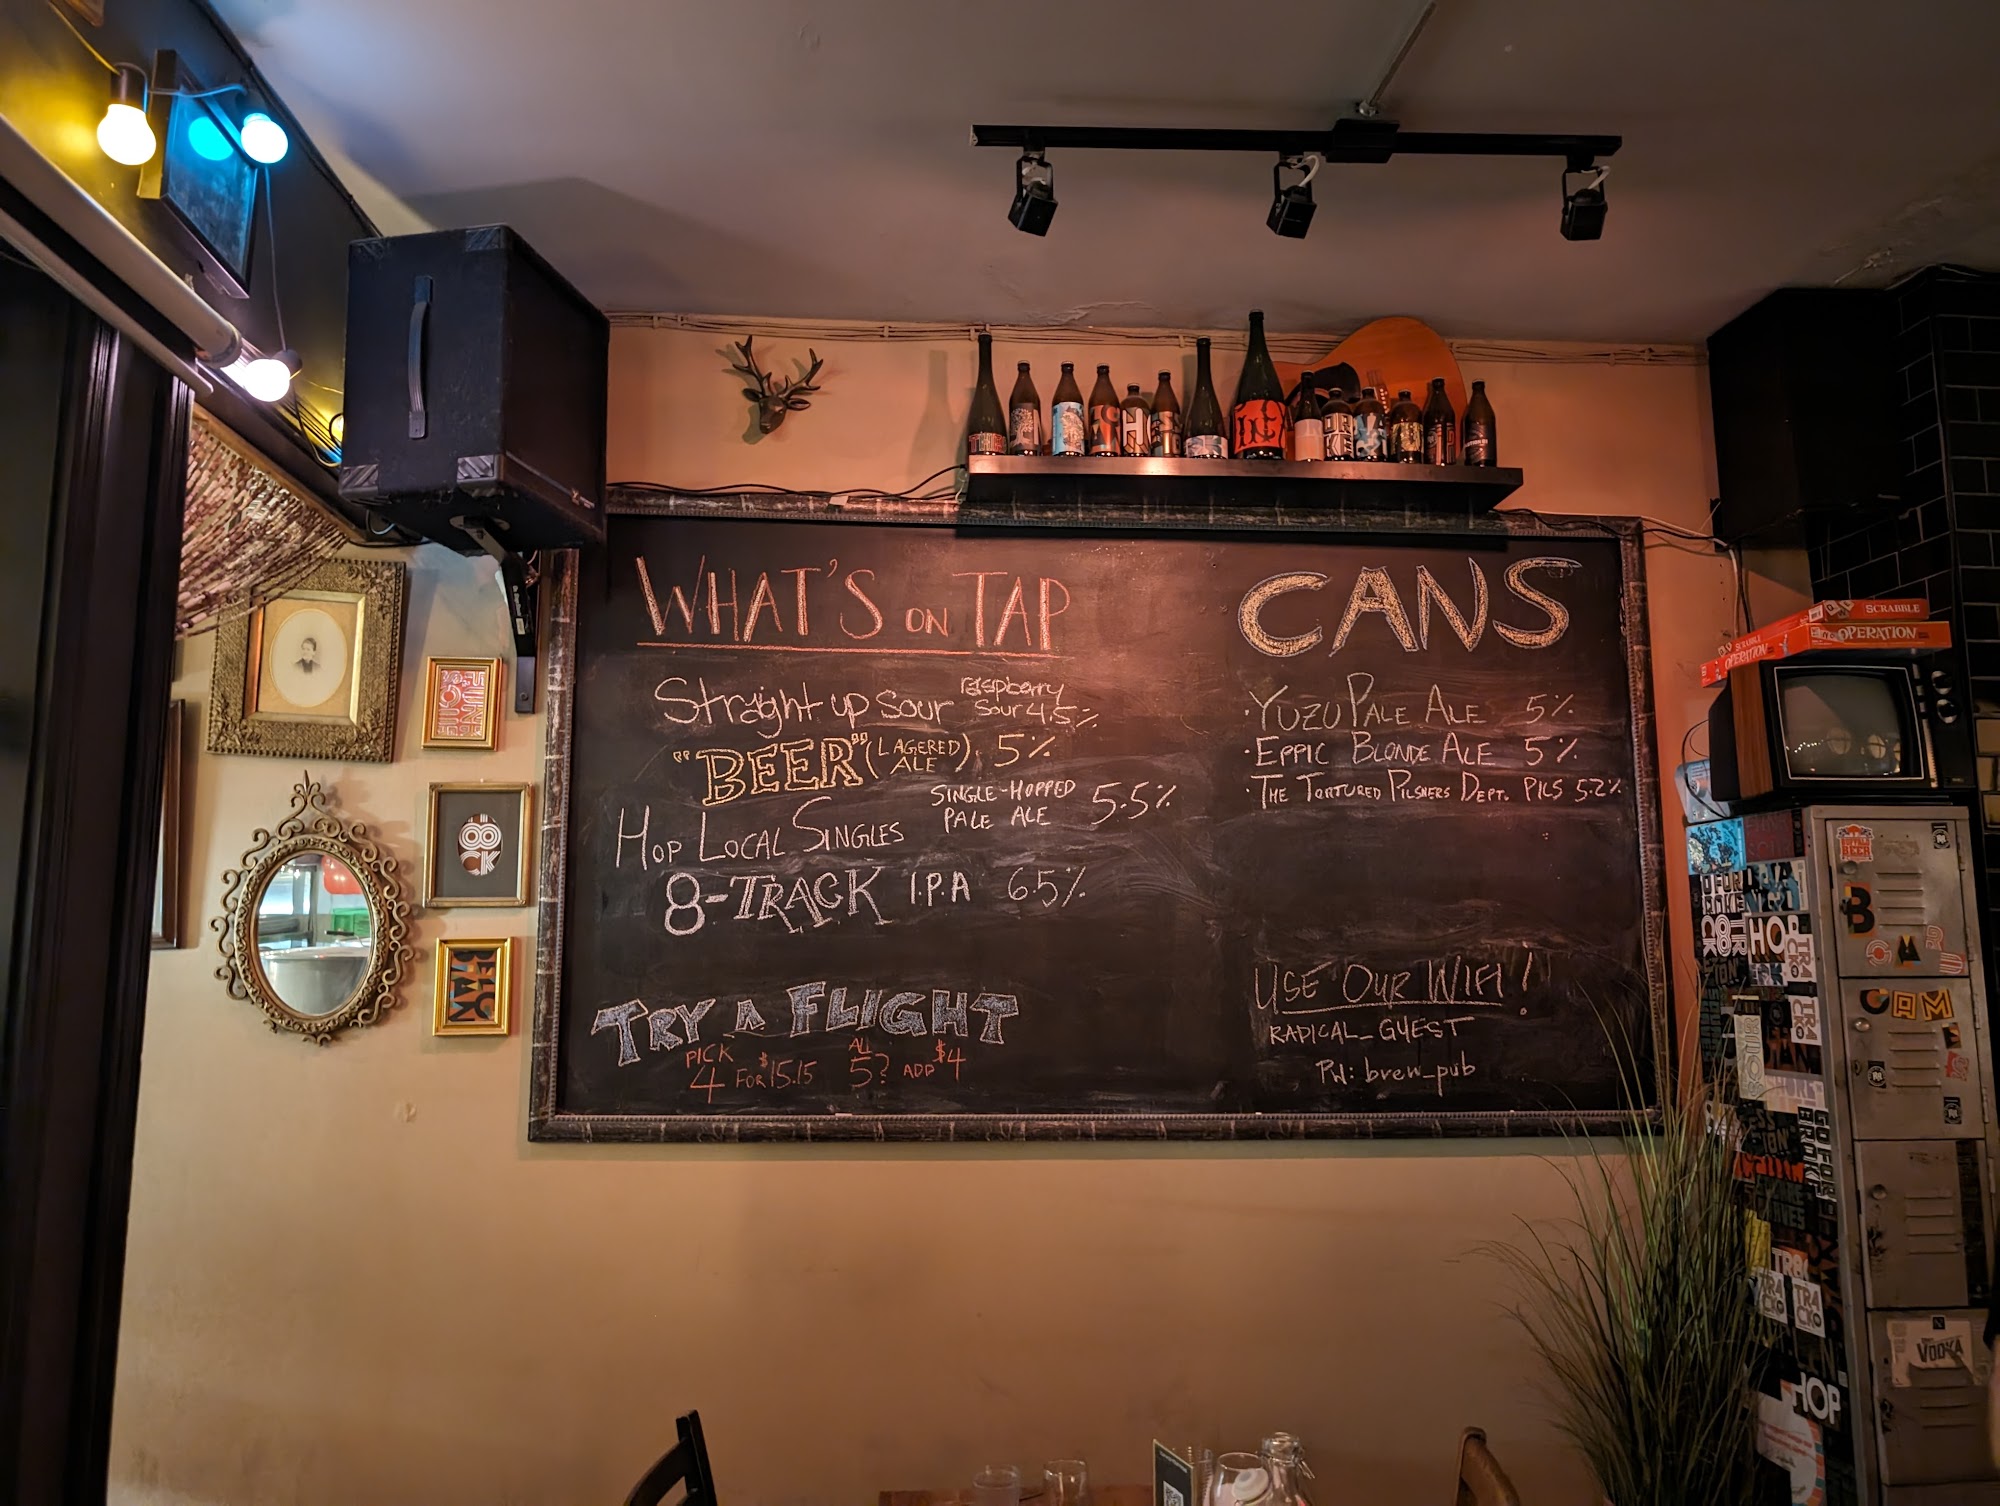 WHAT'S ON TAP
Straight up Sour raspberry sour 4.5%
"BEER" (LAGERED ALE) 5%
HOP LOCAL SINGLES SINGLE-HOPPED PALE ALE 5.5%
8-TRACK I.P.A 6.5%
TRY A FLIGHT
PICK 4 FOR $15.15 ALL 5? ADD $4
CANS
· YUZU PALE ALE 5%
· EPPIC BLONDE ALE 5%
· THE TORTURED PILSNERS DEPT. PILS 5.2%
USE OUR WIFI!
RADICAL_GUEST
PW: brew_pub
SCRABBLE
OPERATION
SCRABBLE
OPERATION
HOP
VODKA
HOP